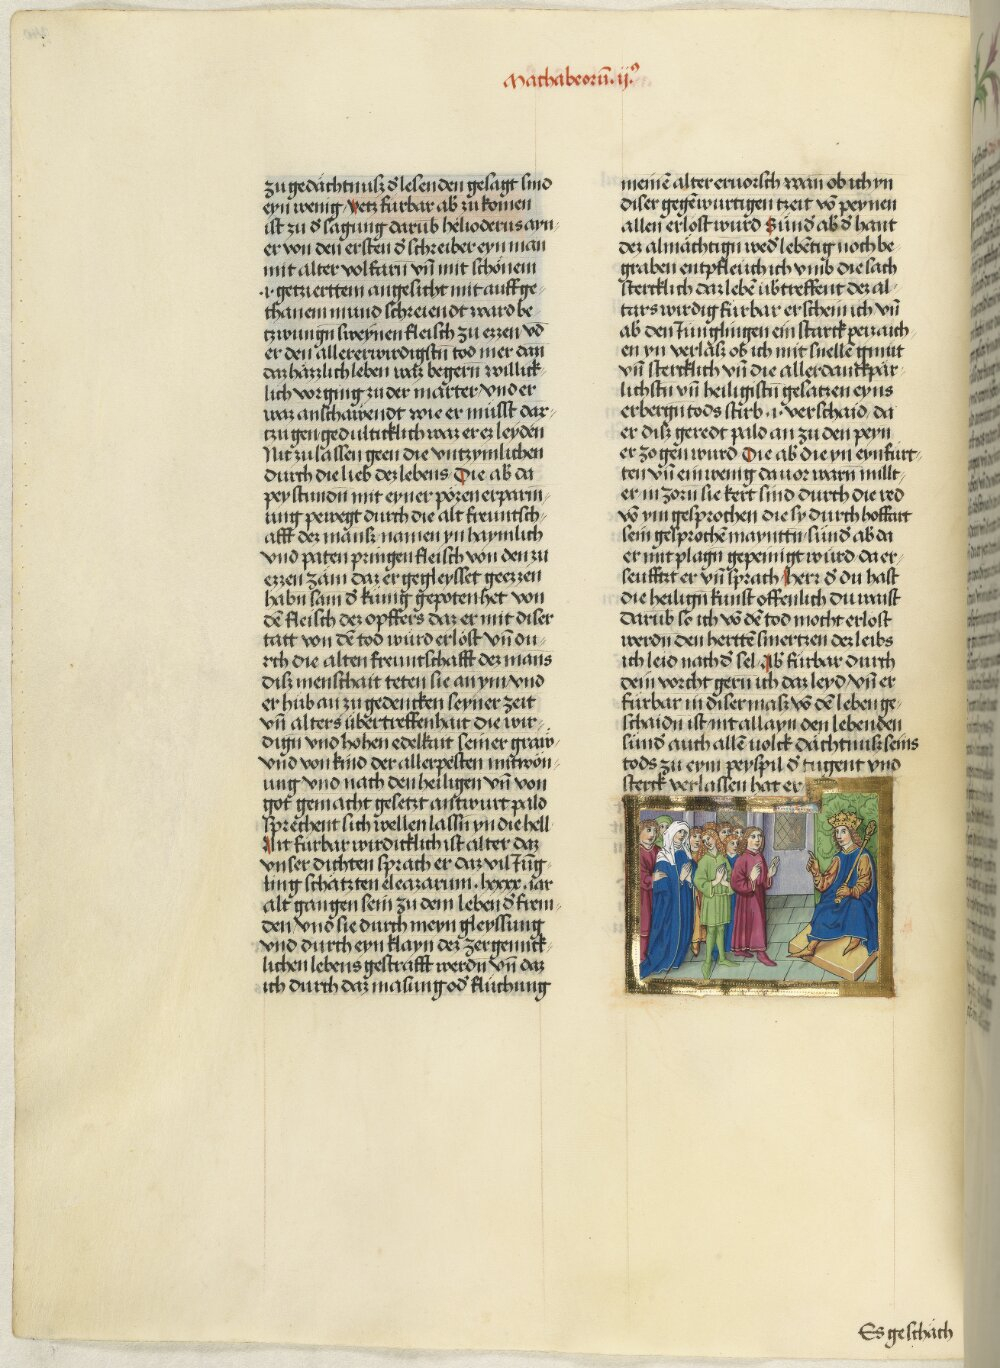 Machabeorū. ij.⁹
zu gedächtnusz d̄ lesenden gesagt sind
eyn wenig Yetz fürbar ab̄ zu komen
ist zu d̄ sagung darūb heliodorus ayn⸗
er von den ersten d̄ schreiber eyn man
mit alter volfarn vn̄ mit schönem
.v. getzierttem angesicht mit auff ge⸗
thanem mund schreiendt ward be
tzwungn̄ sweynen fleisch zu ezzen vō
er den allererwirdigstn̄ tod mer dan̄
daz häzzlich leben waz begern willick⸗
lich vorging zu der marter vnd er
waz anschawendt wie er müsst dar⸗
tzu gen gedulticklich waz er ez leyden
Nit zu lassen geen die vntzymlichen
durch die lieb dez lebens Die ab̄ da
pey stundn̄ mit eyner pözen erparm⸗
ung pewegt durch die alt freuntsch⸗
afft dez mansz namen yn haymlich
vnd paten pringen fleisch von den zu
ezzen zäm daz er gegleysset geezzen
habn̄ sam d̄ kunig gepoten het von
dē fleisch dez opffers daz er mit diser
tatt von dē tod würd erlöst vn̄ du⸗
rch die alten freuntschafft dez mans
disz menschait teten sie an ym vnd
er hub an zu gedencken seyner zeit
vn̄ alters übertreffenhait die wir⸗
dign̄ vnd hohen edelkait seiner graw⸗
vnd von kind der allerpesten mitwon⸗
ung vnd nach den heiligen vn̄ von
got gemacht gesetzt antwurt pald
sprechent sich wellen lassn̄ yn die hell
Nit fürbar wirdicklich ist alter daz
vnser dichten sprach er daz vil Jūg⸗
ling schätzten eleazarum .lxxxx. iar
alt gangen sein zu dem leben d̄ frem⸗
den vnd sie durch meyn gleyssung
vnd durch eyn klayn dez zergencck⸗
lichen lebens gestrafft werdn̄ vn̄ daz
ich durch daz masung od̄ fluchung
meinē alter eruorsch wan ob ich yn
diser gegēwurtigen tzeit vō peynen
allen erlost wurd Sund̄ ab̄ d̄ hant
dez almächtign̄ wed̄ lebētig noch be⸗
graben entpfleuch ich vmb die sach
stercklich daz lebē übtreffent dez al⸗
ters wirdig fürbar erschein ich vn̄
ab den Jünglingen ein starck peizaich⸗
en yn verläsz ob ich mit snellē gmüt
vn̄ stercklich vn̄ die allerdanckpär⸗
lichstn̄ vn̄ heiligistn̄ gesatzen eyns
erbergn̄ tods stirb .v. verschaid, da
er disz geredt pald an zu den peyn
er zogen wurd Die ab̄ die yn eynfürt⸗
ten vn̄ ein wenig dauor warn millt⸗
er in zorn sie kert sind durch die red
vō ym gesprochen die sy durch hoffart
sein gesprochē mayntn̄ sund̄ ab̄ da
er mit plagn̄ gepeinigt würd da er⸗
seufftzt er vn̄ sprach herr d̄ du hast
die heilign̄ kunst offenlich du waist
darūb so ich vō dē tod mocht erlost
werdn̄ den herttē smertzen dez leibs
ich leid nach d̄ sel Ab̄ fürbar durch
dein vorcht gern ich daz leyd vn̄ er
fürbar in diser masz vō dē leben ge⸗
schaidn̄ ist nit allayn den lebenden
sund̄ auch allē uolck dächtnusz seins
tods zu eym peyspil d̄ tugent vnd
sterck verlassen hat er
Es geschach